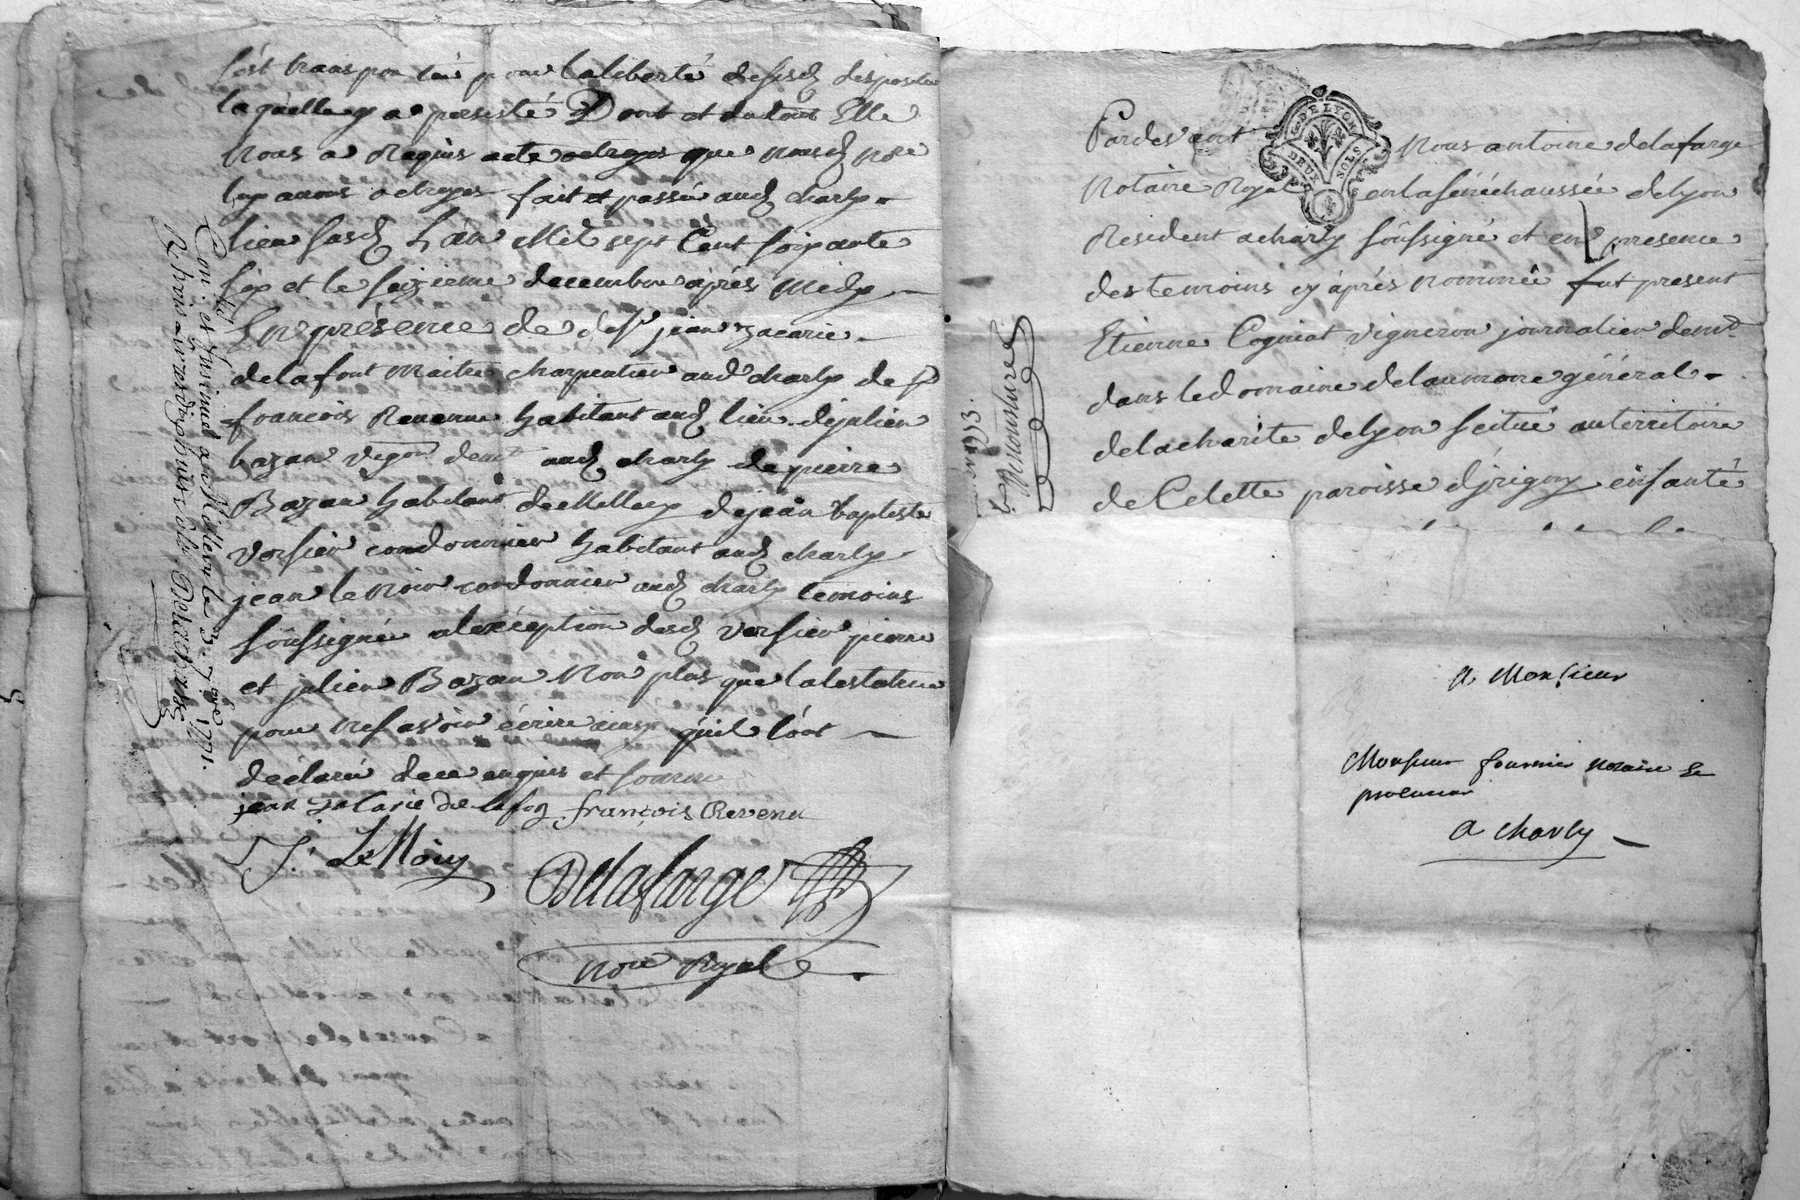 s'est transporté pour la liberté de sesd. despositions
laquelle y a persisté Dont et du tout Elle
Nous a Requis acte octroyé que nousd. nore
luy avons octroyé fait et passé aud. charly
lieu susd. L'an Mil sept Cent soixante
six et le seizieme decembre après Midy
En présence de de sr. jean zacarie
delafont Maitre charpentier aud. charly de sr.
francois Revenu habitant aud. lieu de julien
bazan vigon demt. aud. charly de pierre
Bazan habitant de Millery de jean baptiste
Versieu cordonnier habitant aud. charly
jean le Noir cordonnier aud. charly temoins
soussignés a lexception desd. versieu pierre
et julien Bazan Non plus que la testatrice
pour ne savoir écrire ainsy qu'il l'ont
declaré de ce enquis et sommé
jean zacarie de lafon françois Revenu
J. LeNoir
Delafarge
nore Royal
1791.
Par devant Nous antoine delafarge
G. DE LYON
DEUX SOLS
Notaire Royal en la sénéchaussée de lyon
Resident a charly soussigné et en presence
des temoins cy après nommés fut present
Etienne Cogniat vigneron journalier demt.
dans le domaine de laumone général
de la charite de lyon scitué au territoire
de Celette paroisse d'jrigny enfanté
A Monsieur
Monsieur fournier notaire &
procureur
A charly